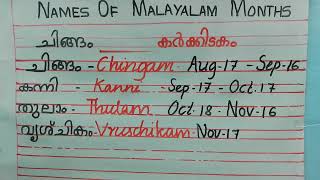 Names Of Malayalam Months
ചിങ്ങം കർക്കിടകം
ചിങ്ങം - Chingam Aug-17 - Sep-16
കന്നി - Kanni Sep-17 - Oct.17
തുലാം - Thulam Oct-18 - Nov-16
വൃശ്ചികം - Vruschikam - Nov-17